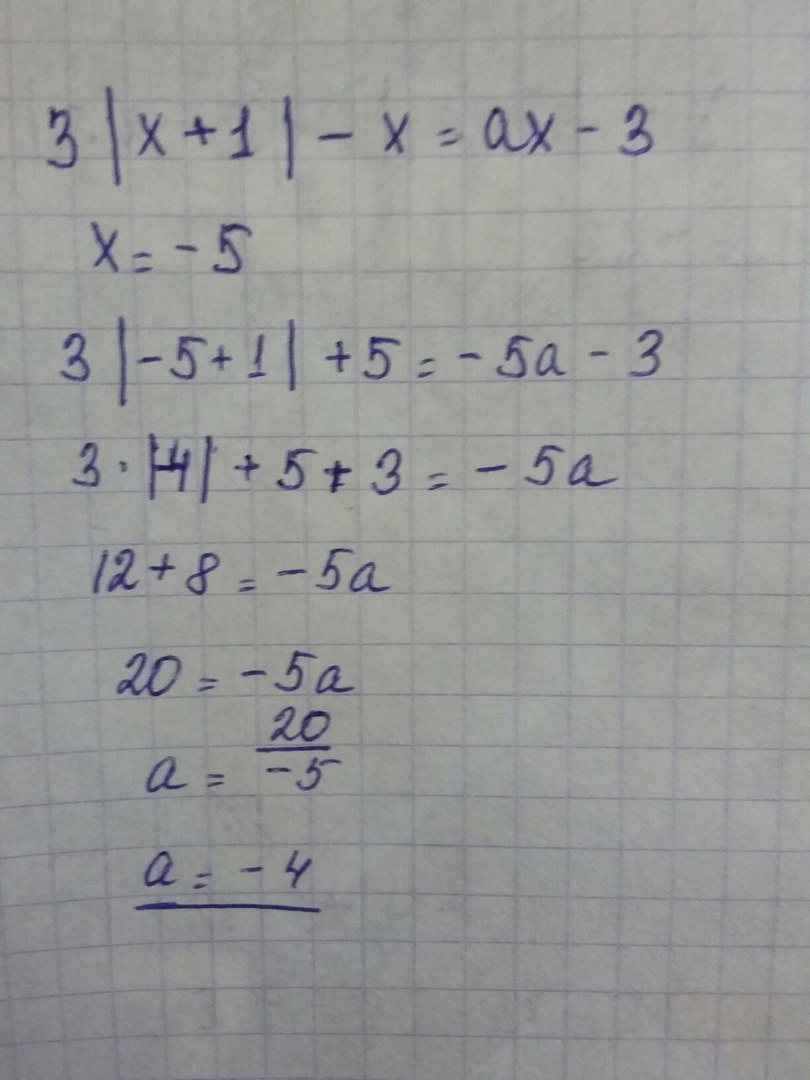 3|x+1|-x=ax-3
x=-5
3|-5+1|+5=-5a-3
3·|-4|+5+3=-5a
12+8=-5a
20=-5a
a=20/-5
a=-4